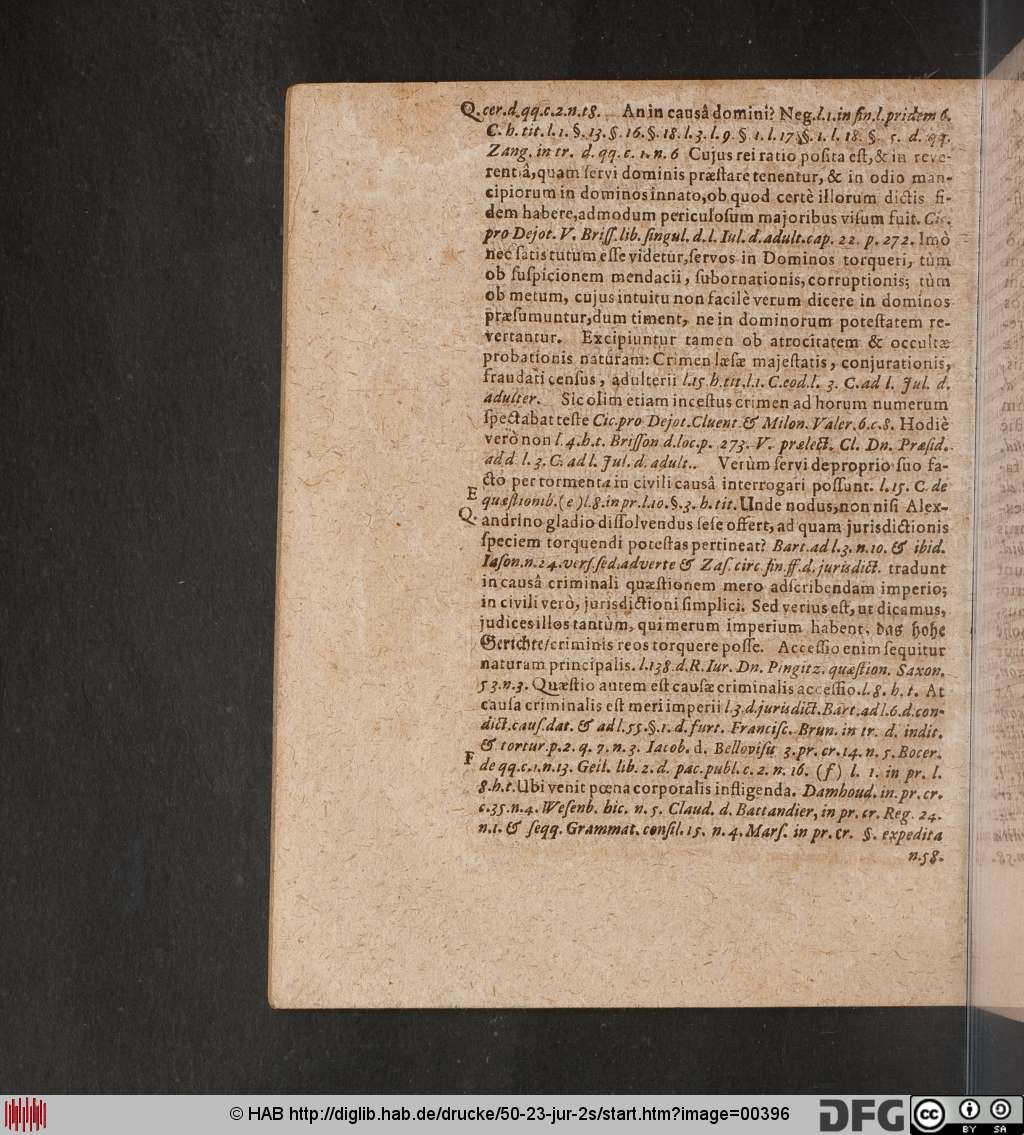 Q. cer.d.qq.c.2.n.18. An in causâ domini? Neg.l.1.in fin.l.pridem 6.
C. h. tit. l. 1. §. 13. §. 16. §. 18. l. 3. l. 9. §. 1. l. 17. §. 1. l. 18. §. 5. d. qq.
Zang. in tr. d. qq. c. 1. n. 6 Cujus rei ratio posita est, & in reve-
rentiâ, quam servi dominis præstare tenentur, & in odio man-
cipiorum in dominos innato, ob quod certè illorum dictis fi-
dem habere, admodum periculosum majoribus visum fuit. Cic.
pro Dejot. V. Briss. lib. singul. d. l. Iul. d. adult. cap. 22. p. 272. Imò
nec satis tutum esse videtur, servos in Dominos torqueri, tùm
ob suspicionem mendacii, subornationis, corruptionis; tùm
ob metum, cujus intuitu non facilè verum dicere in dominos
præsumuntur, dum timent, ne in dominorum potestatem re-
vertantur. Excipiuntur tamen ob atrocitatem & occultæ
probationis naturam: Crimen læsæ majestatis, conjurationis,
fraudati census, adulterii l.15.h.tit.l.1. C.eod.l. 3. C.ad l. Jul. d.
adulter. Sic olim etiam incestus crimen ad horum numerum
spectabat teste Cic.pro Dejot.Cluent & Milon. Valer. 6.c.8. Hodiè
verò non l. 4.h.t. Brisson d.loc.p. 273. V. prælect. Cl. Dn. Præsid.
ad d. l. 3. C. ad l. Jul. d. adult.. Verùm servi de proprio suo fa-
cto per tormenta in civili causâ interrogari possunt. l. 15. C. de
E
quæstionib.(e)l.8.in pr.l.10.§.3. h.tit. Unde nodus, non nisi Alex-
Q. andrino gladio dissolvendus sese offert, ad quam jurisdictionis
speciem torquendi potestas pertineat? Bart.ad l.3. n.10. & ibid.
Iason.n.24.vers.sed.adverte & Zas. circ.fin.ff.d.jurisdict. tradunt
in causâ criminali quæstionem mero adscribendam imperio;
in civili verò, jurisdictioni simplici. Sed verius est, ut dicamus,
judices illos tantùm, qui merum imperium habent, das hohe
Gerichte/criminis reos torquere posse. Accessio enim sequitur
naturam principalis. l.138.d.R.Iur. Dn. Pingitz. quæstion. Saxon.
53.n.3. Quæstio autem est causæ criminalis accessio. l. 8. h. t. At
causa criminalis est meri imperii l.3.d.jurisdict.Bart.ad l.6.d.con-
dict.caus.dat. & ad l.55.§.1. d. furt. Francisc. Brun. in tr. d. indit.
& tortur.p.2. q. 7. n. 3. Iacob. d. Bellovisu 3.pr. cr. 14. n. 5. Bocer.
F
de qq.c.1.n.13. Geil. lib. 2. d. pac.publ. c. 2. n. 16. (f) l. 1. in pr. l.
8.h.t. Ubi venit pœna corporalis infligenda. Damhoud. in. pr. cr.
c.35.n.4. Wesenb. hic. n. 5. Claud. d. Battandier, in pr. cr. Reg. 24.
n.1. & seqq. Grammat. consil. 15. n. 4. Mars. in pr. cr. §. expedita
n. 58.
© HAB http://diglib.hab.de/drucke/50-23-jur-2s/start.htm?image=00396
DFG
cc
BY SA